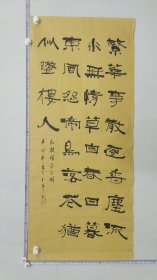 繁華事散逐香塵流
水無情草自春日暮
東風怨啼鳥落花猶
似墜樓人